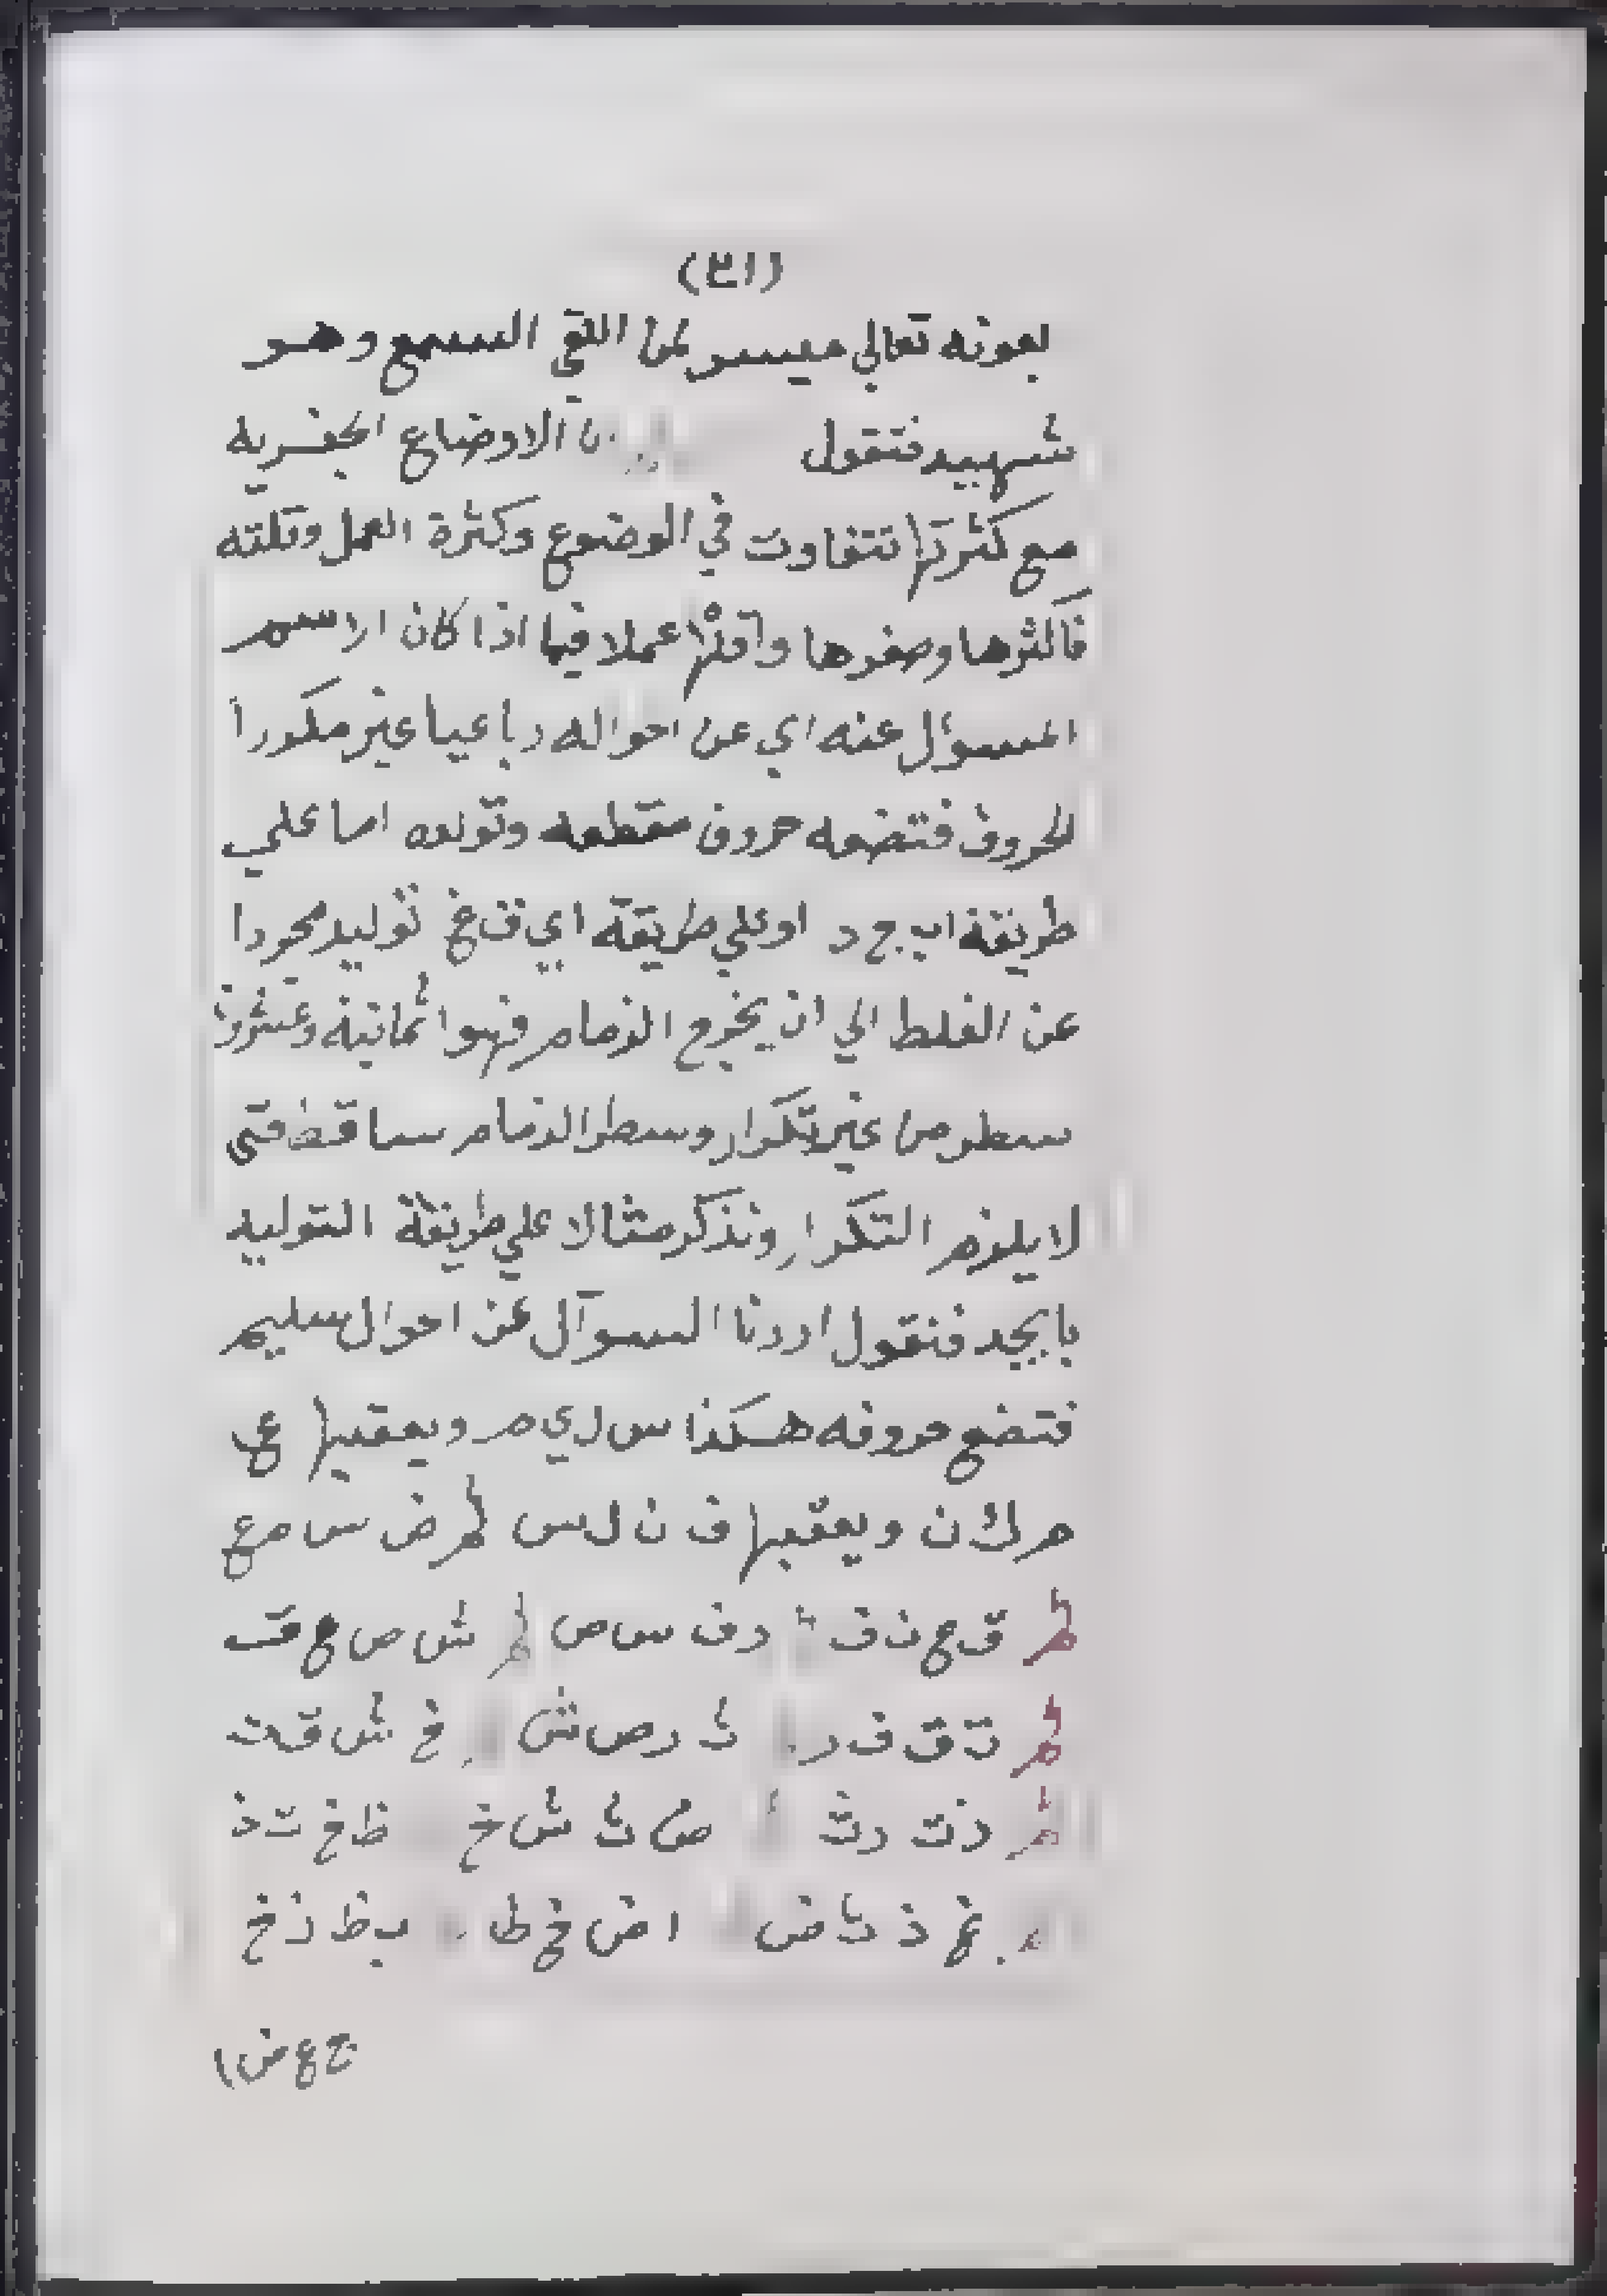 (٣١)
بعونه تعالي ميسر لمن القي السمع وهو
شهيد فتقول الاوضاع الجفريه
مع كثرتها تتفاوت في الوضوع وكثرة العمل وقلته
فاكثرها وصغرها واقلها عملا فيما اذا كان الاسم
المسوال عنه اي عن احواله رباعيا غير مكررا
الحروف فتضعه حروف مقطعه وتولده اما علي
طريقة اب ج د او علي طريقة اي ق غ توليد مجردا
عن الغلط الي ان يخرج الزمام فهوا ثمانية وعشرون
سطر من غير تكرار وسطر الزمام ساقط حتي
لا يلزم التكرار ونذكر مثالا علي طريقة التوليد
بابجد فنقول اردنا السوآل عن احوال سليم
فتضع حروفه هكذا س ل ي م ويعقبها ع
م ك ن ويعقبها ف ن ل س ص س م ع
ق ع ن ف ر ف س ص ش ص ع ق
ت ق ف ر ث ر ص ش خ ش ق ت
ذ ت ر ث ض ث ش خ ظ خ ت ذ
غ ذ ث ض ا ض خ ظ ب ظ ذ غ
ج غ ض ا